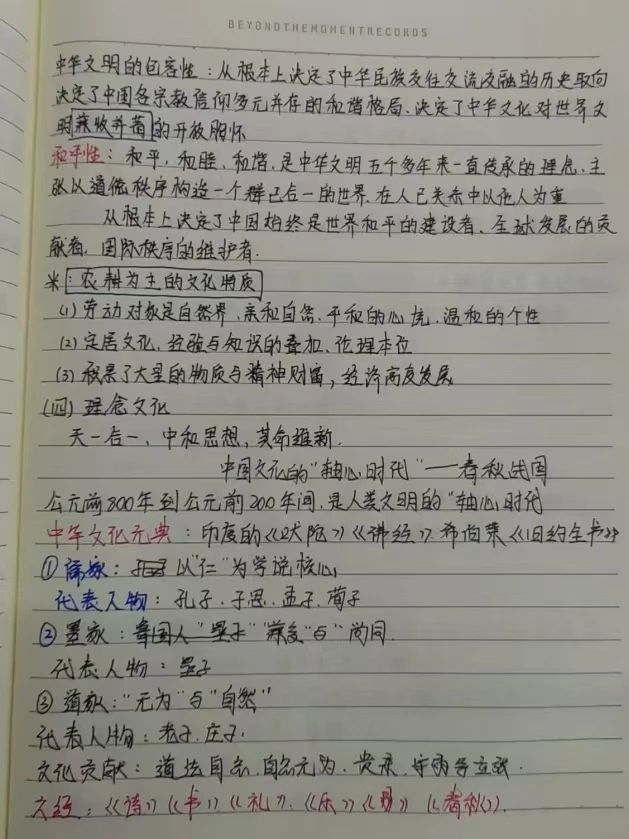 BEYONDTHEMOMENTRECORDS
中华文明的包容性：从根本上决定了中华民族交往交流交融的历史取向
决定了中国各宗教信仰多元并存的和谐格局、决定了中华文化对世界文
明兼收并蓄的开放胸怀
和平性：和平，和睦，和谐，是中华文明五千多年来一直传承的理念，主
张以道德秩序构造一个群己合一的世界，在人己关系中以他人为重
从根本上决定了中国始终是世界和平的建设者、全球发展的贡
献者、国际秩序的维护者。
※：农耕为主的文化特质
(1) 劳动对象是自然界，亲和自然、平和的心境，温和的个性
(2) 定居文化，经验与知识的叠加，伦理本位
(3) 积累了大量的物质与精神财富，经济高度发展
(四) 理念文化
天一合一、中和思想，革命维新．
中国文化的“轴心时代”——春秋战国
公元前800年到公元前200年间，是人类文明的“轴心时代
中华文化元典：印度的《吠陀》《佛经》，希伯莱《旧约全书》
①儒家：以“仁”为学说核心
代表人物：孔子、子思、孟子、荀子
②墨家：“兼爱”与“尚同．
代表人物：墨子
③道家：“无为”与“自然”
代表人物：老子、庄子．
文化贡献：道法自然，自然无为、贵柔、守雌等立说．
六经：《诗》《书》《礼》、《乐》《易》《春秋》．